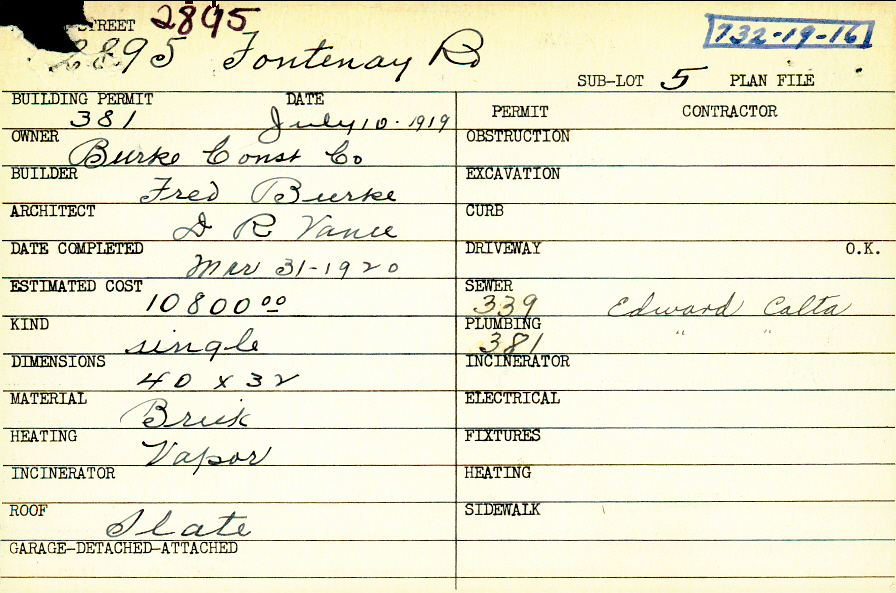 STREET 2895
2895 Fontenay Rd
732-19-16
SUB-LOT 5 PLAN FILE
BUILDING PERMIT DATE
381 July 10-1919
OWNER
Burke Const Co
BUILDER
Fred Burke
ARCHITECT
D R Vance
DATE COMPLETED
Mar 31-1920
ESTIMATED COST
10800 00
KIND
single
DIMENSIONS
40 x 32
MATERIAL
Brick
HEATING
Vapor
INCINERATOR
ROOF
Slate
GARAGE-DETACHED-ATTACHED
PERMIT CONTRACTOR
OBSTRUCTION
EXCAVATION
CURB
DRIVEWAY O.K.
SEWER
339 Edward Calta
PLUMBING
381 " "
INCINERATOR
ELECTRICAL
FIXTURES
HEATING
SIDEWALK